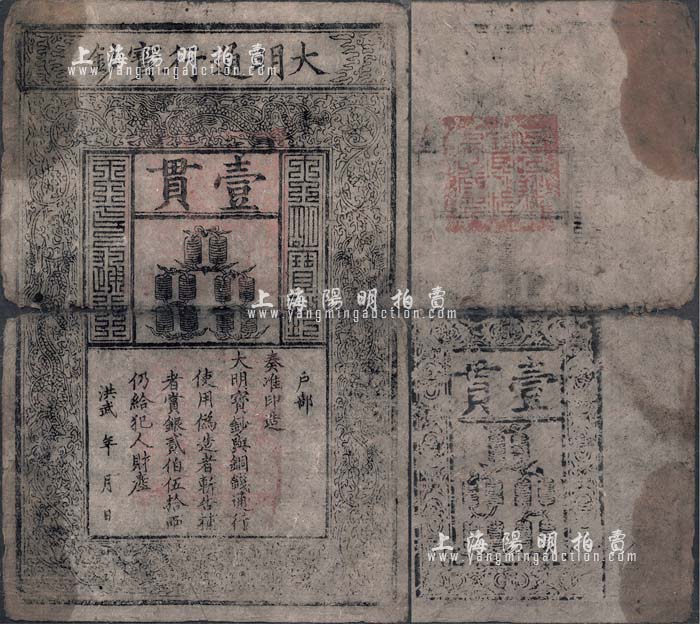 大明通行寶鈔
壹貫
戶部
奏准印造
大明寶鈔與銅錢通行
使用偽造者斬告捕
者賞銀貳伯伍拾兩
仍給犯人財產
洪武 年 月 日
壹貫
上海陽明拍賣
www.yangmingauction.com
上海陽明拍賣
www.yangmingauction.com
上海陽明拍賣
www.yangmingauction.com
上海陽明拍賣
www.yangmingauction.com
上海陽明拍賣
www.yangmingauction.com